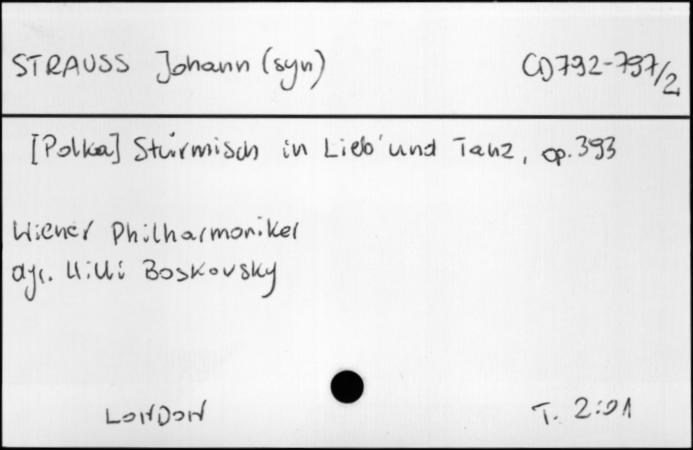 STRAUSS Johann (syn) CD 792-797/2
[Polka] Stürmisch in Lieb' und Tanz, op. 393
Wiener Philharmoniker
dyr. Willi Boskovsky
LONDON T. 2:01